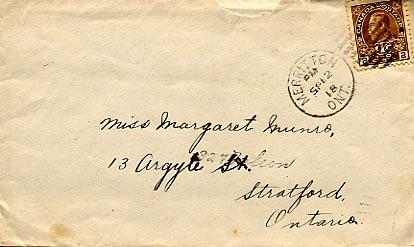 CANADA POSTAGE
MERRITTON
PM
SP 12
18
ONT.
Miss Margaret Munro,
13 Argyle St.
Stratford,
Ontario.